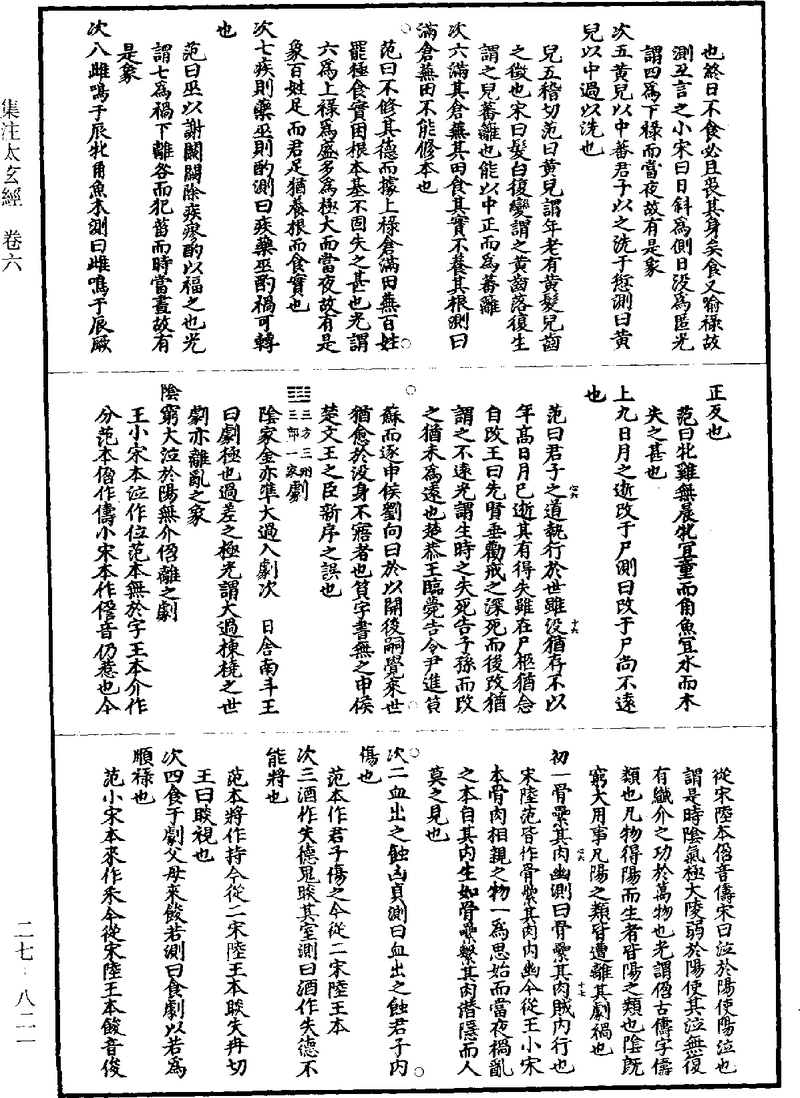 集注太玄經 卷六
二七·八二一
也終日不食必且喪其身矣食又喻祿故
測丑言之小宋曰日斜為側日沒為匿光
謂四為下祿而當夜故有是象
次五黃兒以中蕃君子以之洗于愆測曰黃
兒以中過以洗也
兒五稽切范曰黃兒謂年老有黃髮兒齒
之徵也宋曰髮白復變謂之黃齒落復生
謂之兒蕃離也能以中正而為蕃離
次六滿其倉蕪其田食其實不養其根測曰
滿倉蕪田不能修本也
范曰不修其德而據上祿倉滿田蕪百姓
罷極食實困根本基不固失之甚也光謂
六為上祿為盛多為極大而當夜故有是
象百姓足而君足猶養根而食實也
次七疾則藥巫則酌測曰疾藥巫酌禍可轉
也
范曰巫以謝闕闢除疾疫酌以福之也光
謂七為禍下離咎而犯菑而時當晝故有
是象
次八雌鳴于辰牝角魚木測曰雌鳴于辰厥
正反也
范曰牝雞無晨牝宜童而角魚宜水而木
失之甚也
上九日月之逝改于尸測曰改于尸尚不遠
也
范曰君子之道執行於世雖沒猶存不以
年高日月已逝其有得失雖在尸柩猶念
自改王曰先賢垂勸戒之深死而後改猶
謂之不遠光謂生時之失死告子孫而改
之猶未為遠也楚恭王臨薨告令尹進筫
蘇而逐申侯劉向曰於以開後嗣覺來世
猶愈於沒身不寤者也筫字書無之申侯
楚文王之臣新序之誤也
三方三州三部一家劇
陰家金亦準大過入劇次 日舍南斗王
曰劇極也過差之極光謂大過棟橈之世
劇亦離亂之象
陰窮大泣於陽無介㑹離之劇
王小宋本泣作位范本無於字王本介作
分范本㑹作儔小宋本作㑹音仍惹也今
從宋陸本㑹音儔宋曰泣於陽使陽泣也
謂是時陰氣極大陵弱於陽使其泣無復
有纖介之功於萬物也光謂㑹古儔字儔
類也凡物得陽而生者皆陽之類也陰既
窮大用事凡陽之類皆遭離其劇禍也
初一骨纍其肉幽測曰骨纍其肉賊內行也
宋陸范皆作骨縈其肉內幽今從王小宋
本骨肉相親之物一為思始而當夜禍亂
之本自其內生如骨纍繫其肉潛隱而人
莫之見也
次二血出之蝕凶貞測曰血出之蝕君子內
傷也
范本作君子傷之今從二宋陸王本
次三酒作失德鬼睒其室測曰酒作失德不
能將也
范本將作持今從二宋陸王本睒失冉切
王曰睒視也
次四食于劇父母來餕若測曰食劇以若為
順祿也
范小宋本來作釆今從宋陸王本餕音俊